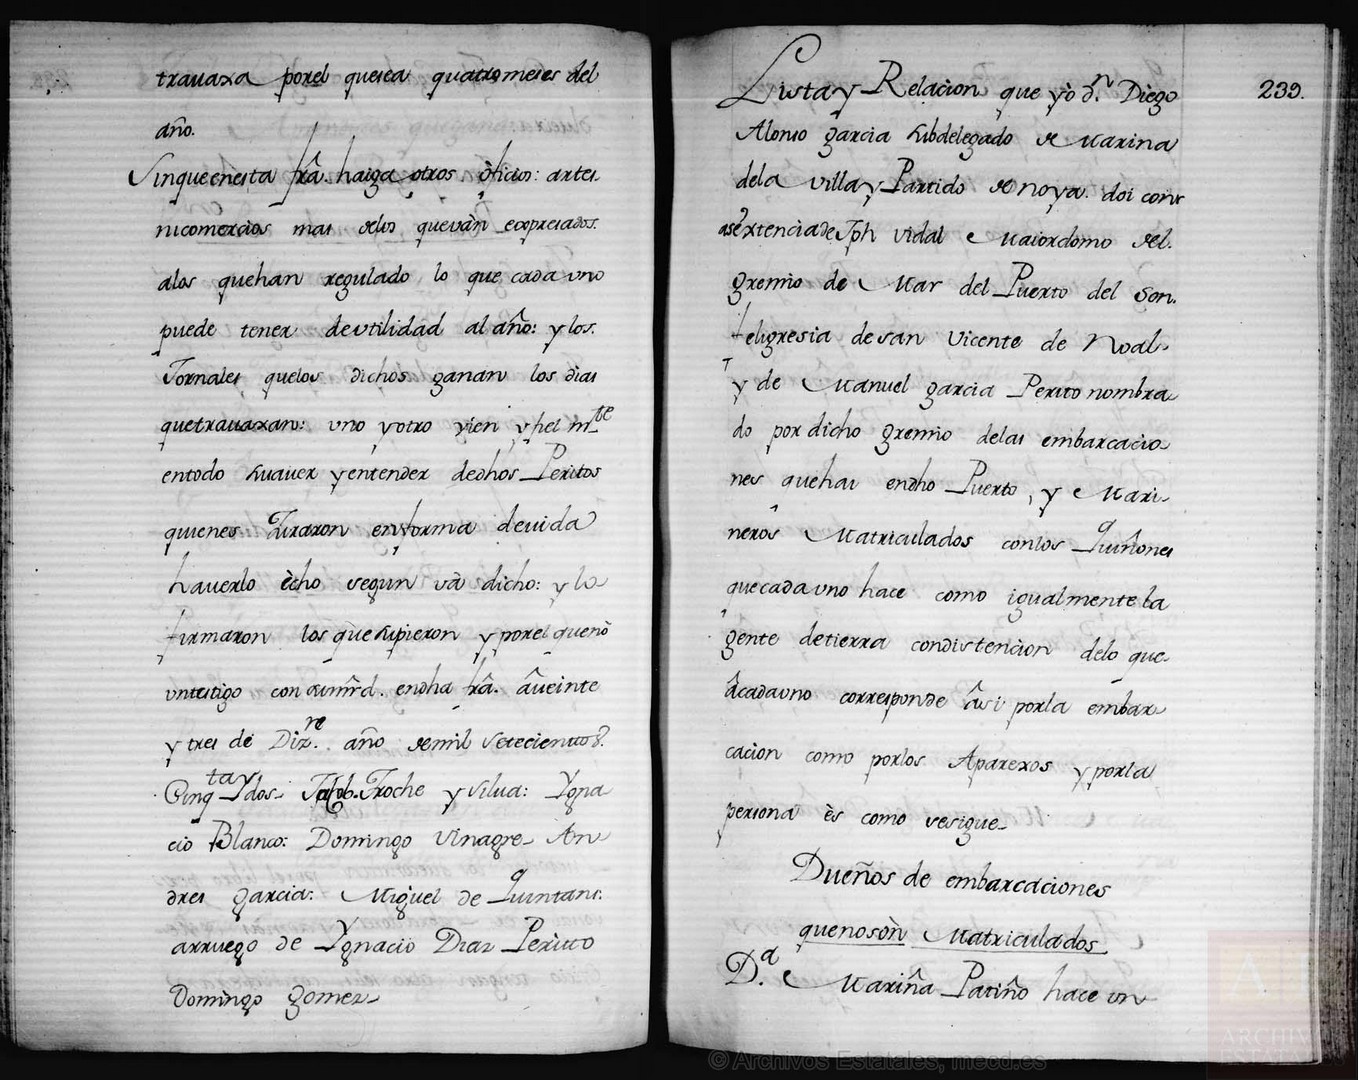 travaxa porel quesea quatromeses del
año.
Sinqueenesta frâ. haiga otros ôficios: artes
nicomercios mas delos quevàn expresados.
alos quehan regulado lo que cada uno
puede tener deutilidad al año: y los.
Jornales quelos dichos ganan los dias
quetravaxan: uno yotro vien y fiel mte
entodo su saver yentender dedhos Peritos
quienes Juraron enforma devida
haverlo êcho segun và dicho: y lo
firmaron los que supieron y porel quenò
untestigo con sumrd. endha frâ. âveinte
y tres de Dizre. año demil Setecientos.
Cinqta y dos Jacob. Troche y Silva: Ygna
cio Blanco: Domingo Vinagre An
dres garcia: Miguel de Quintans.
arruego de Ygnacio Diaz Perito
Domingo gomez
Lista y Relacion que yò dn. Diego 239.
Alonso garcia subdelegado de Marina
dela villa y Partido de noya. doi con
asextencia de Jph vidal Maiordomo del.
gremio de Mar del Puerto del Son.
feligresia de san Vicente de Noal
y de Manuel garcia Perito nombra
do por dicho gremio delas embarcacio
nes quehai endho Puerto, y Mari
neros Matriculados conlos Quiñones
quecadauno hace como igualmente la
gente detierra condistencion delo que
âcadauno corresponde âsi porla embar
cacion como porlos Aparexos y porla
persona ès como sesigue
Dueños de embarcaciones
quenosòn Matriculados
Da. Mariña Patiño hace un
© Archivos Estatales, mecd.es
ARCHIVOS
ESTATALES